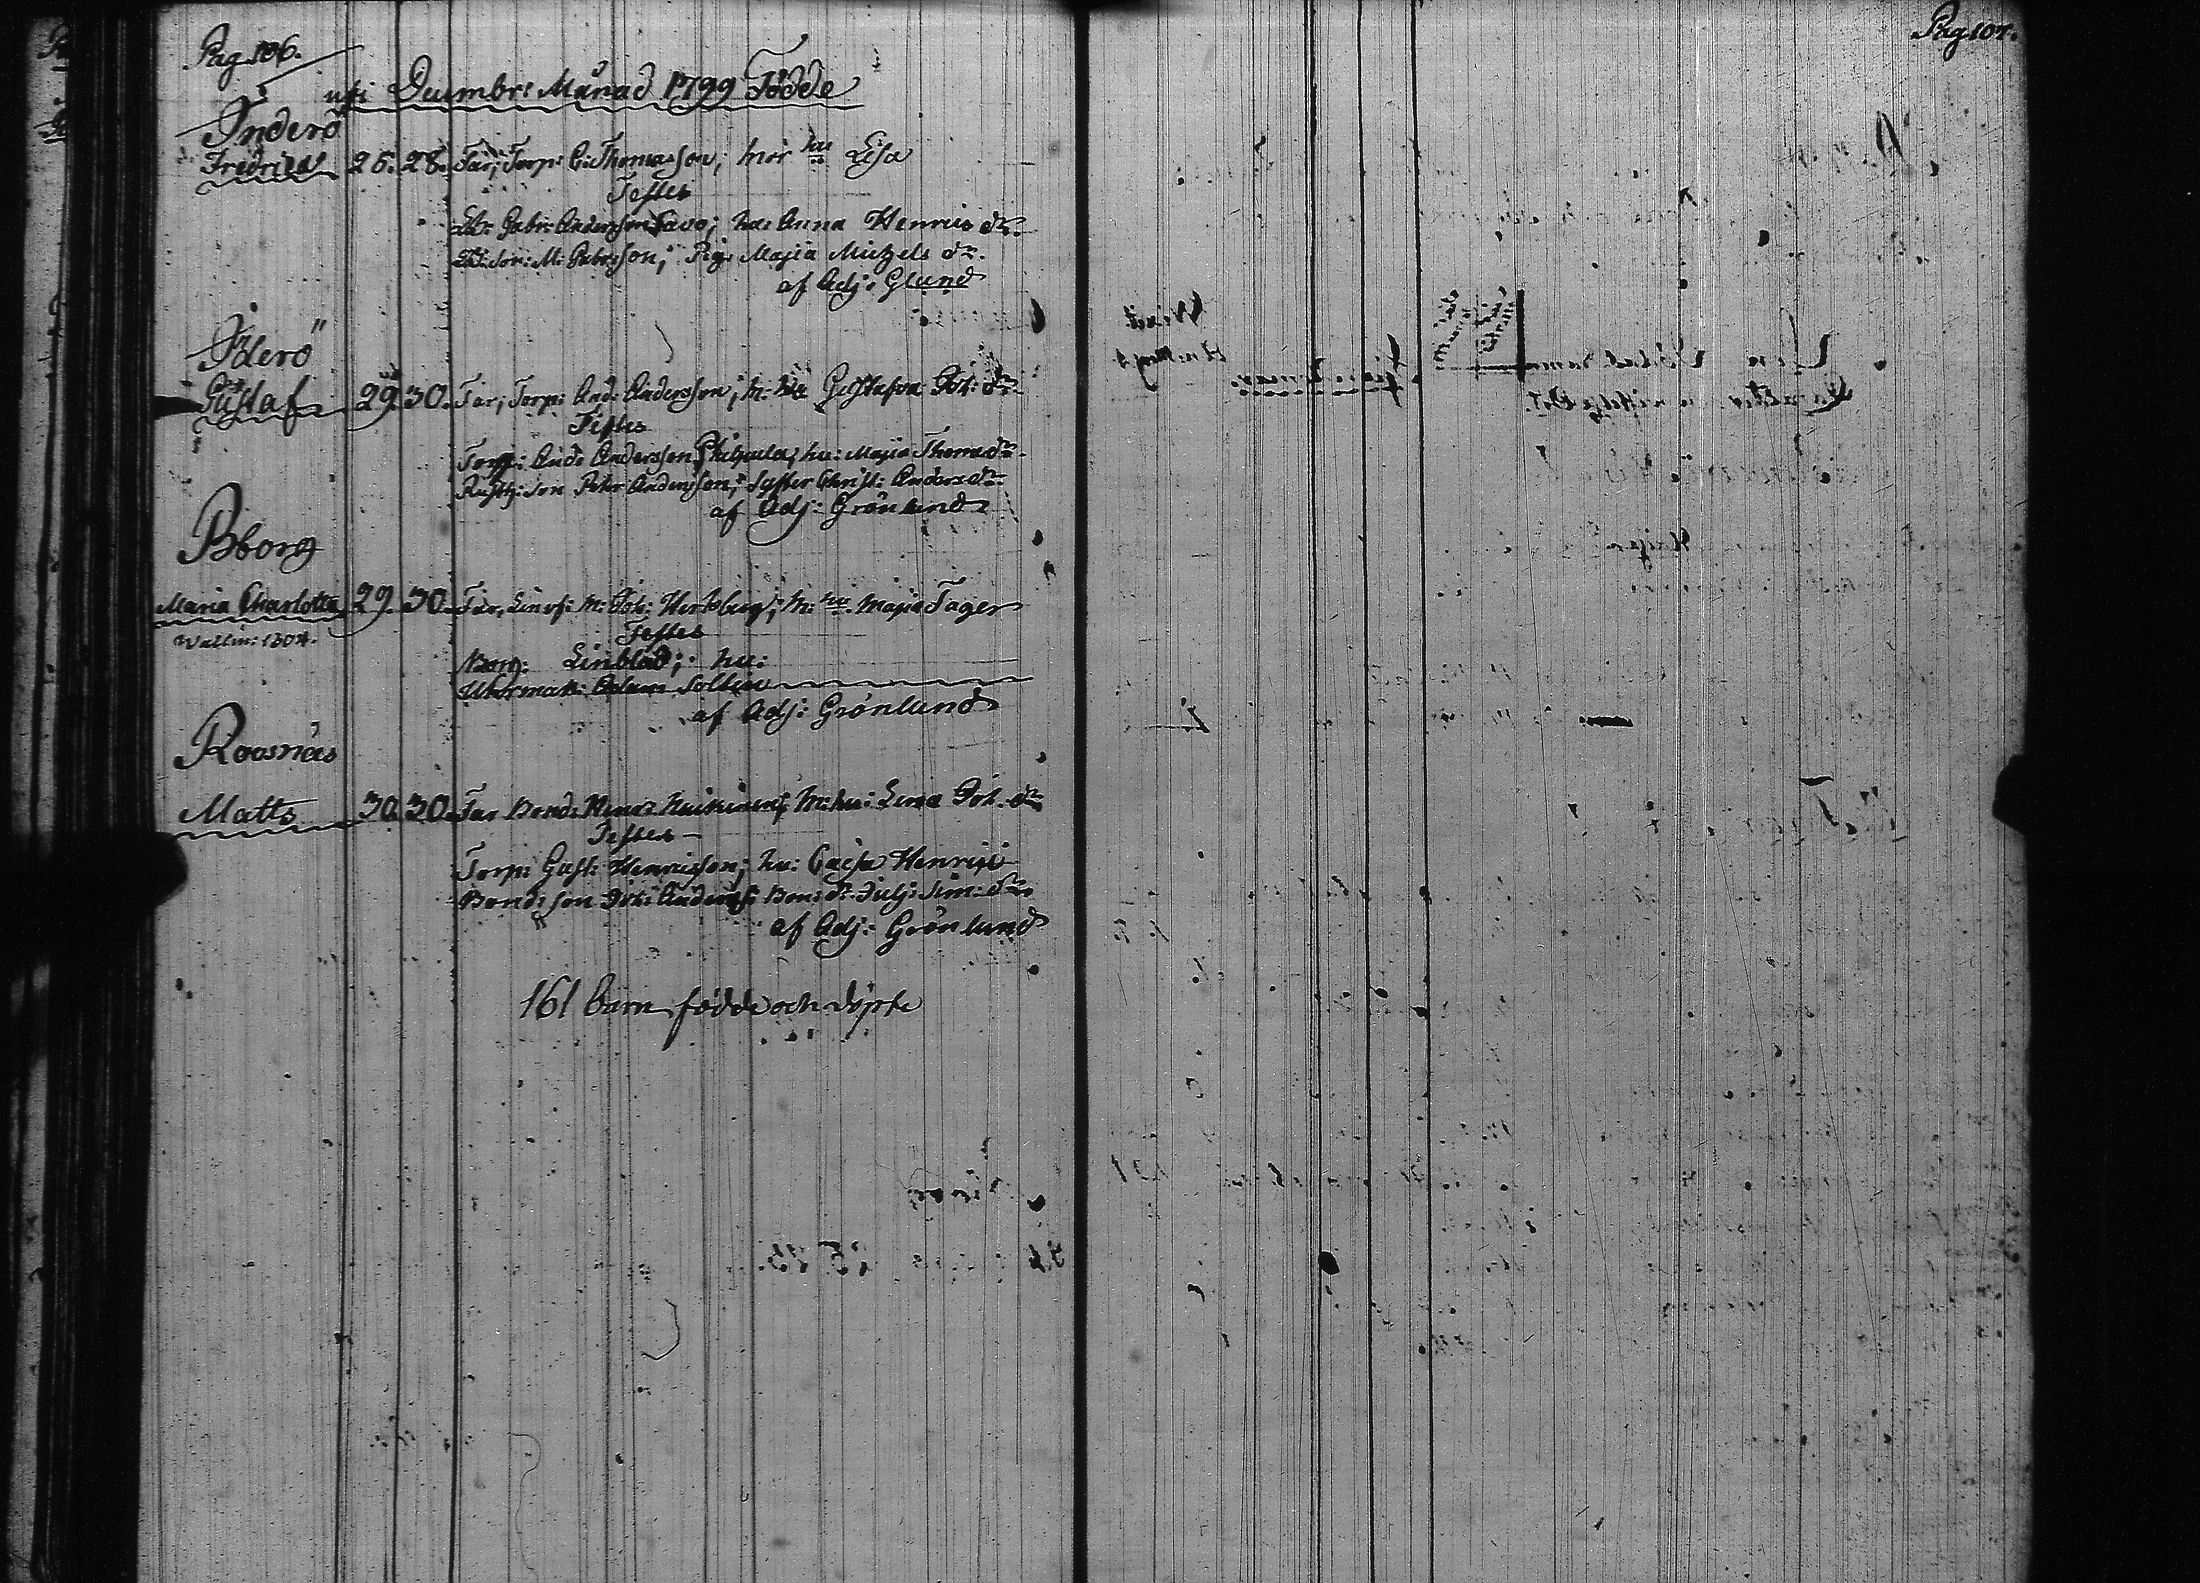 Pag 106.
uti Decembr: Månad 1799 Födde
Inderö
Fredrica 26. 28. Far; Torp: E: Thomasson; mor hu: Lisa
Testes
Gabr: Andersson hu: Anna Henrics dr.
M: Gabrsson; Pig: Majia Michels dr.
af Adj: Glund
Iderö
Gustaf 29. 30. Far; Torp: And: Andersson; M: hu: Gustafva Joh: dr
Testes
Torp: And: Andersson hu: Majia Thoms dr
Rusth: son Peter Andersson; syster Christ: Anders dr
af Adj: Grönlund
Bborg
Maria Charlotta 29. 30. Far, M: Joh: Hertsberg; M: hu: Majia Fager
Wallin: 1304.
Testes
Borg: Linblad; hu:
Uhrmak: Adam
af Adj: Grönlund
Roosnäs
Matts 30. 30. Far Bond: Henr: M: hu: Lena Joh. dr
Testes
Torp: Gust: Henricsson; hu: Cajsa Henrics
Bond: son Joh: Anders: Bon: dr Julj: Sim: dr
af Adj: Grönlund
161 barn födde och döpte
Pag 107.